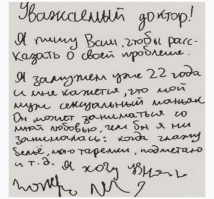 Уважаемый доктор!
Я пишу Вам, чтобы расс-
казать о своей проблеме.
Я замужем уже 22 года
и мне кажется, что мой
муж сексуальный маньяк
Он может заниматься со
мной любовью, чем бы я ни
занималась: когда глажу
бельё, мою тарелки, подметаю
и т.д. Я хочу знать